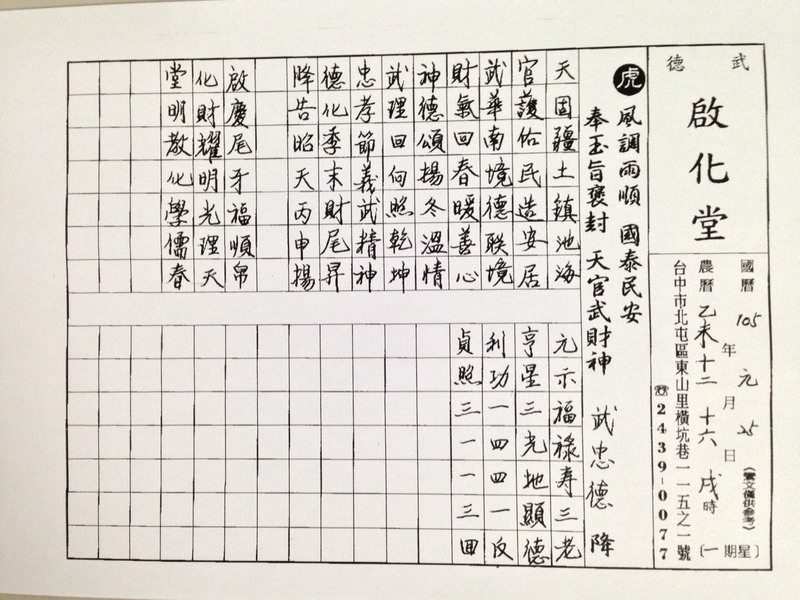 武德
啟化堂
國曆105年元月25日
(鸞文僅供參考)
農曆乙未十二十六戌時
〔星期一〕
台中市北屯區東山里橫坑巷一一五之一號
☎2439-0077
虎 風調雨順 國泰民安
奉玉旨褒封 天官武財神 武忠德 降
天固疆土鎮池海
官護佑民造安居
武華南境德聯境
財氣回春暖善心
神德頌揚冬溫情
武理回向照乾坤
忠孝節義武精神
德化季末財尾昇
降告昭天丙申揚
啟慶尾牙福順帛
化財耀明光理天
堂明教化學儒春
元示福祿寿三老
亨星三光地顯德
利功一四四一反
貞照三一一三回